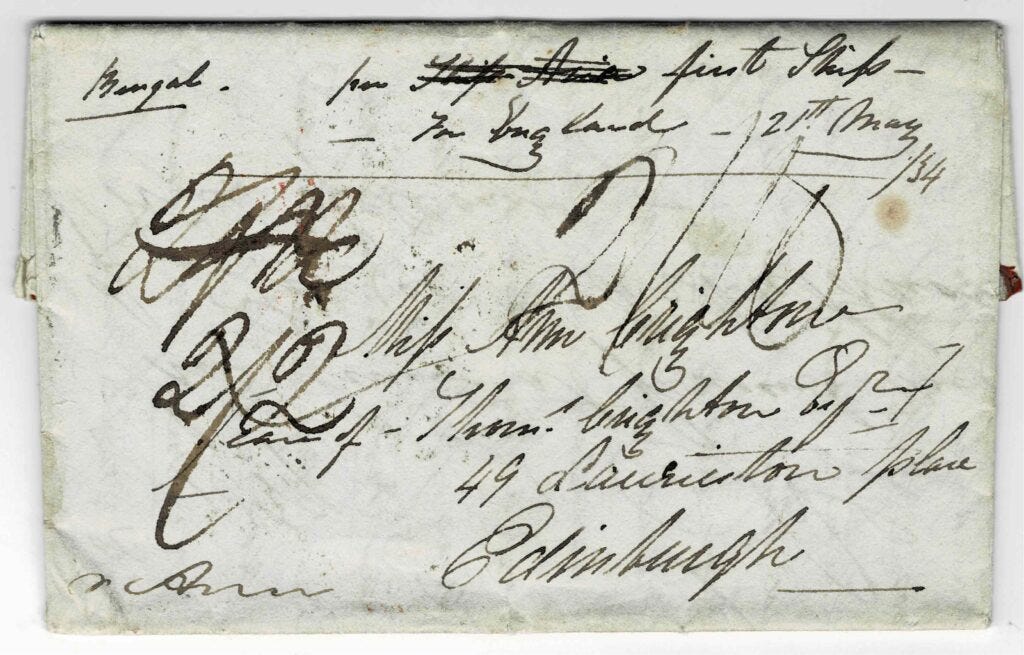 Bengal. per ~~Ship Asia~~ first Ship –
– For England – 21st May /34
2/2
Miss Ann Crighton
Care of – Thoms. Crighton Esqr
49 Lauriston place
Edinburgh
Ann